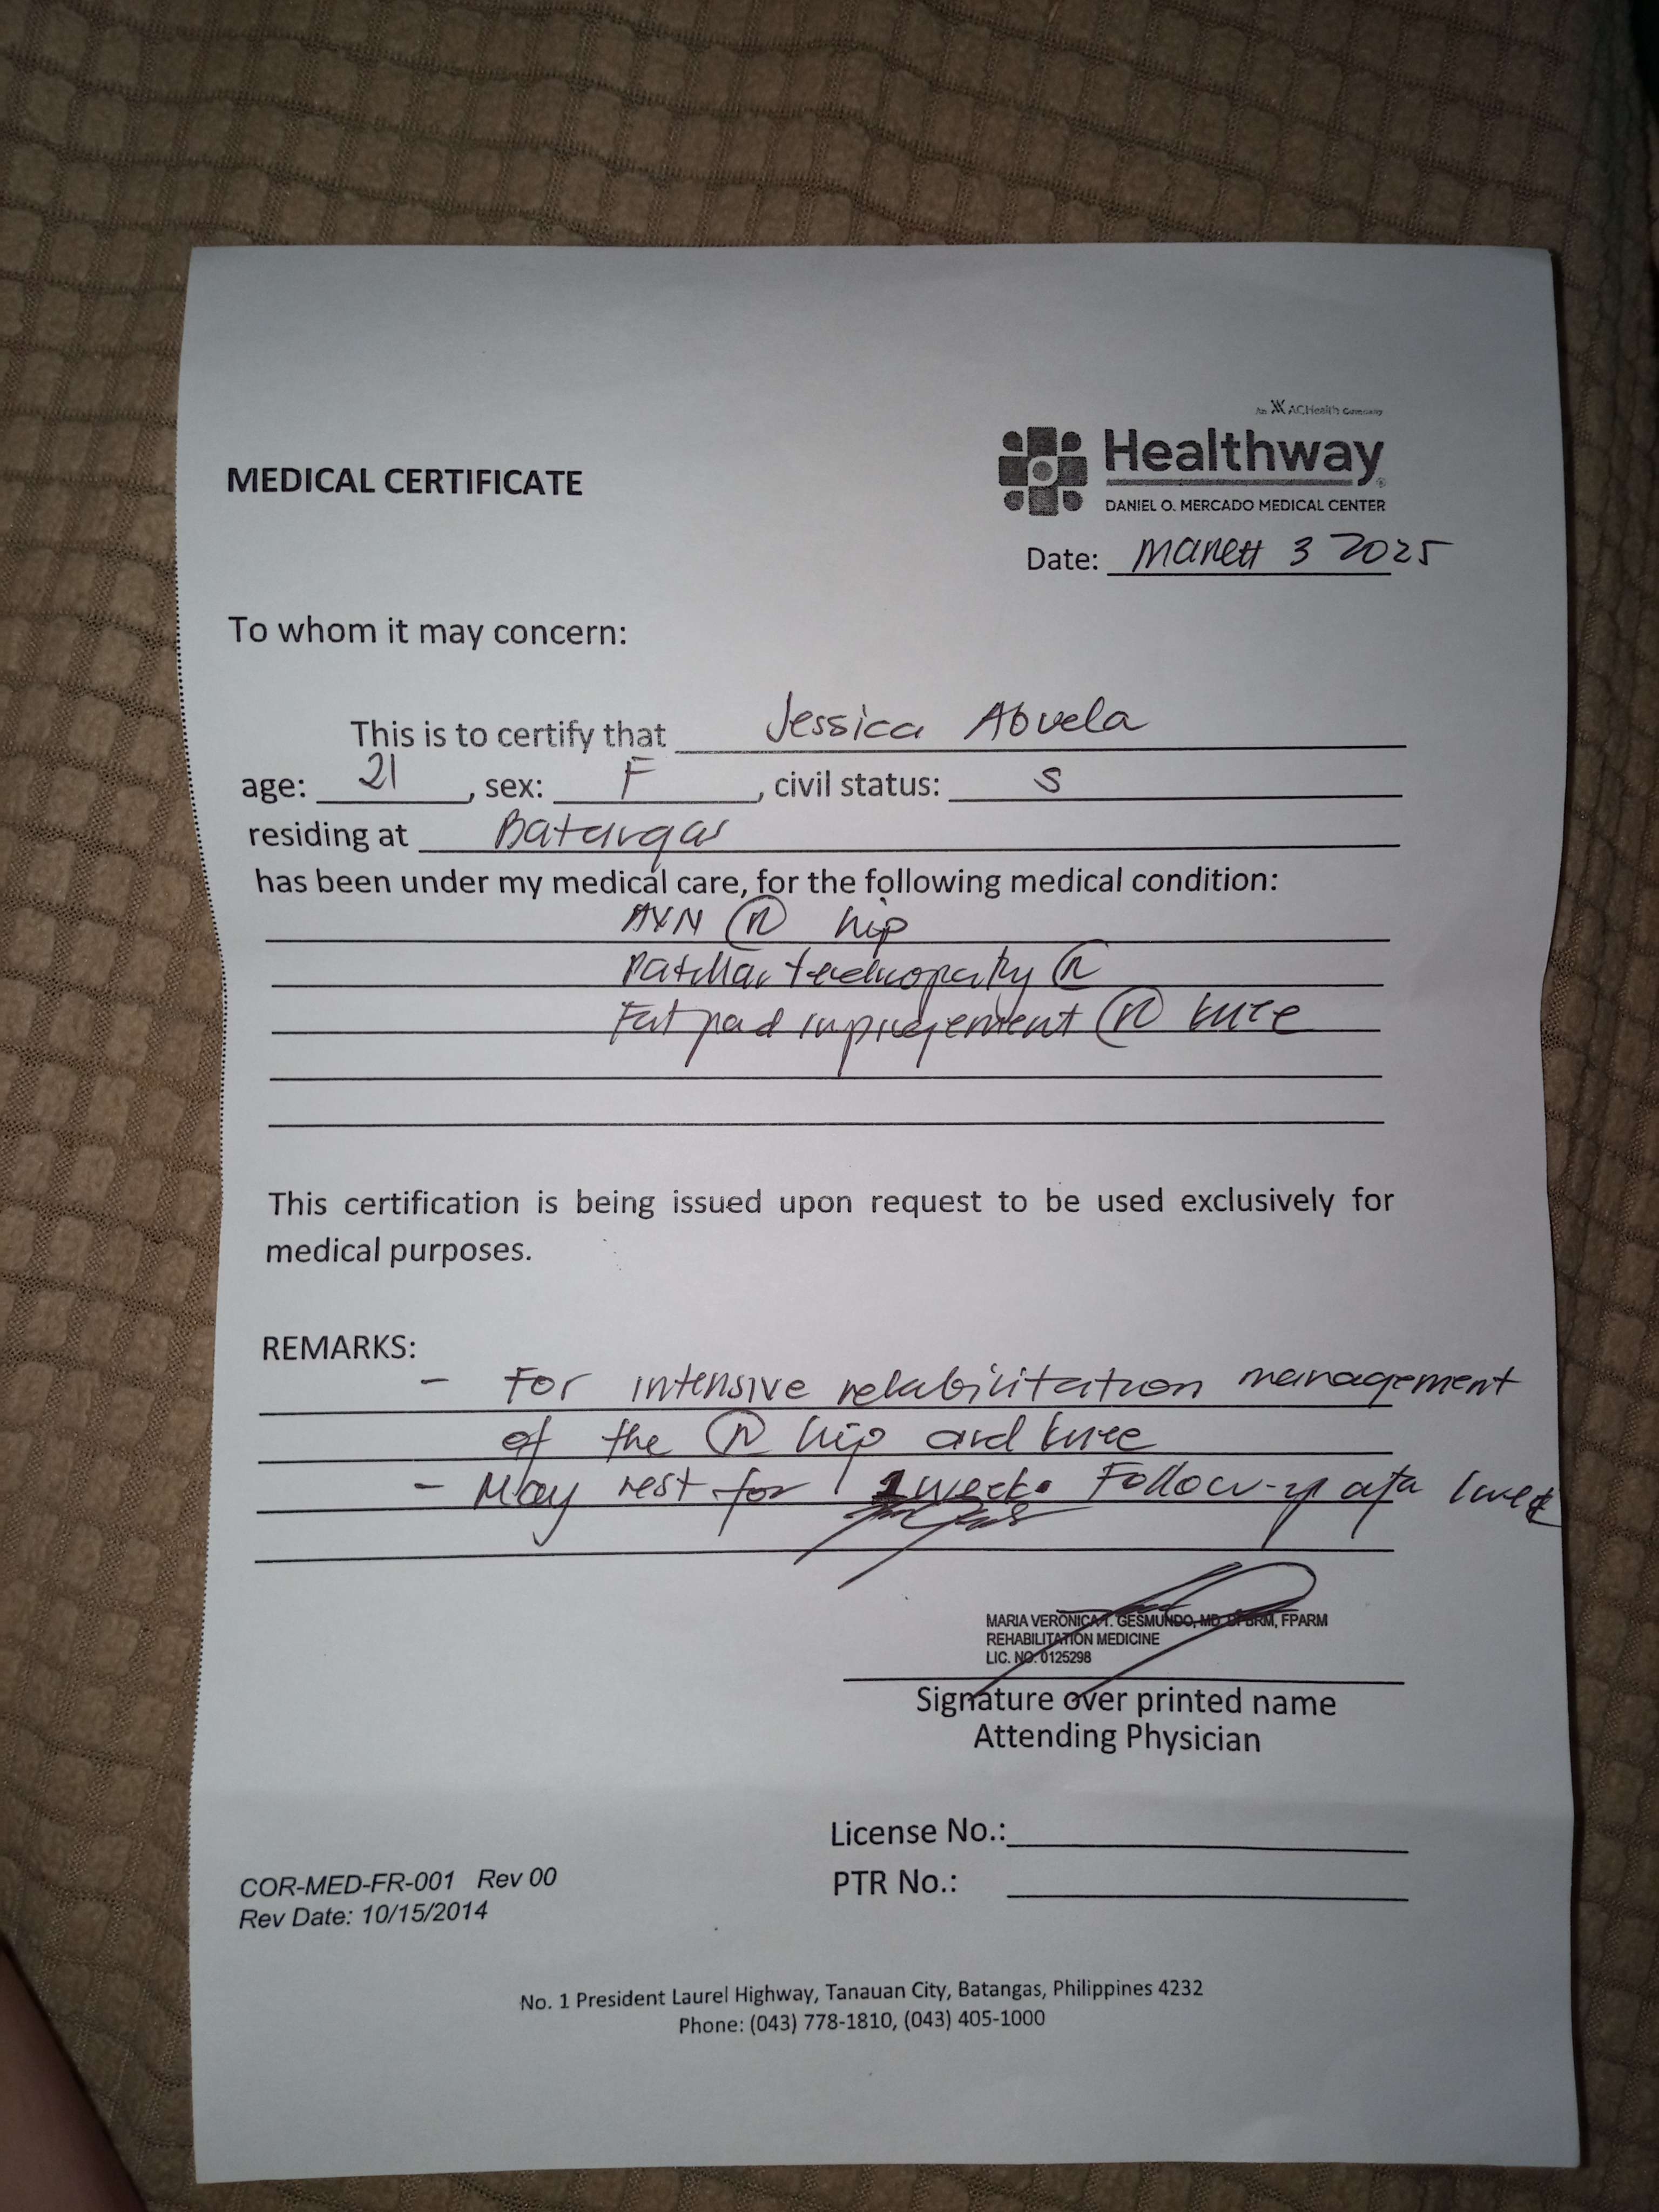 An ACHealth Company
Healthway
DANIEL O. MERCADO MEDICAL CENTER
MEDICAL CERTIFICATE
Date: MARCH 3 2025
To whom it may concern:
This is to certify that Jessica Abuela
age: 21, sex: F, civil status: S
residing at Batangas
has been under my medical care, for the following medical condition:
AVN Ⓡ hip
Patellar tendinopathy Ⓡ
Fat pad impingement Ⓡ knee
This certification is being issued upon request to be used exclusively for
medical purposes.
REMARKS:
- For intensive rehabilitation management
of the Ⓡ hip and knee
- May rest for 1 week. Follow-up after 1 week
MARIA VERONICA T. GESMUNDO, MD, DPBRM, FPARM
REHABILITATION MEDICINE
LIC. NO. 0125298
Signature over printed name
Attending Physician
License No.:
PTR No.:
COR-MED-FR-001 Rev 00
Rev Date: 10/15/2014
No. 1 President Laurel Highway, Tanauan City, Batangas, Philippines 4232
Phone: (043) 778-1810, (043) 405-1000